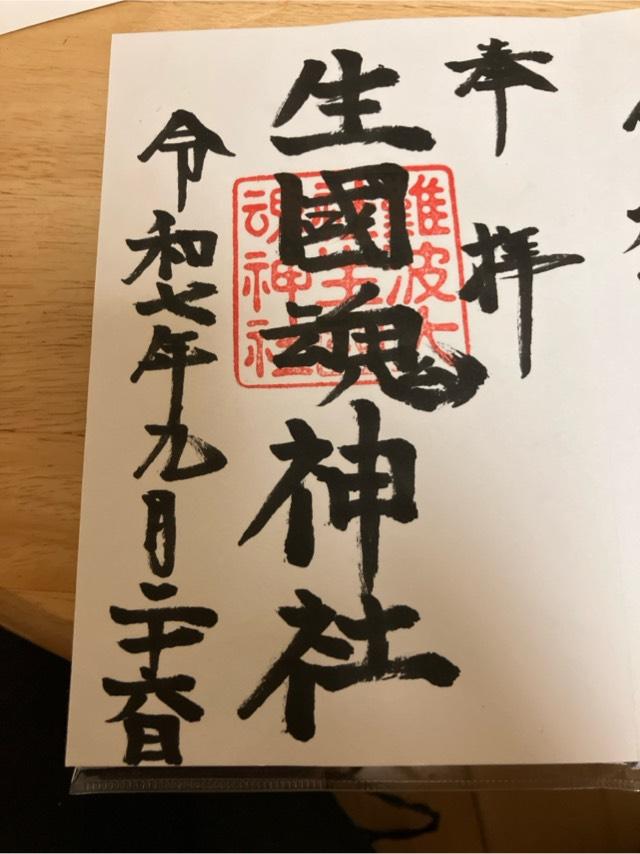 奉拝
生國魂神社
令和七年九月二十六日
難波大
社生國
魂神社